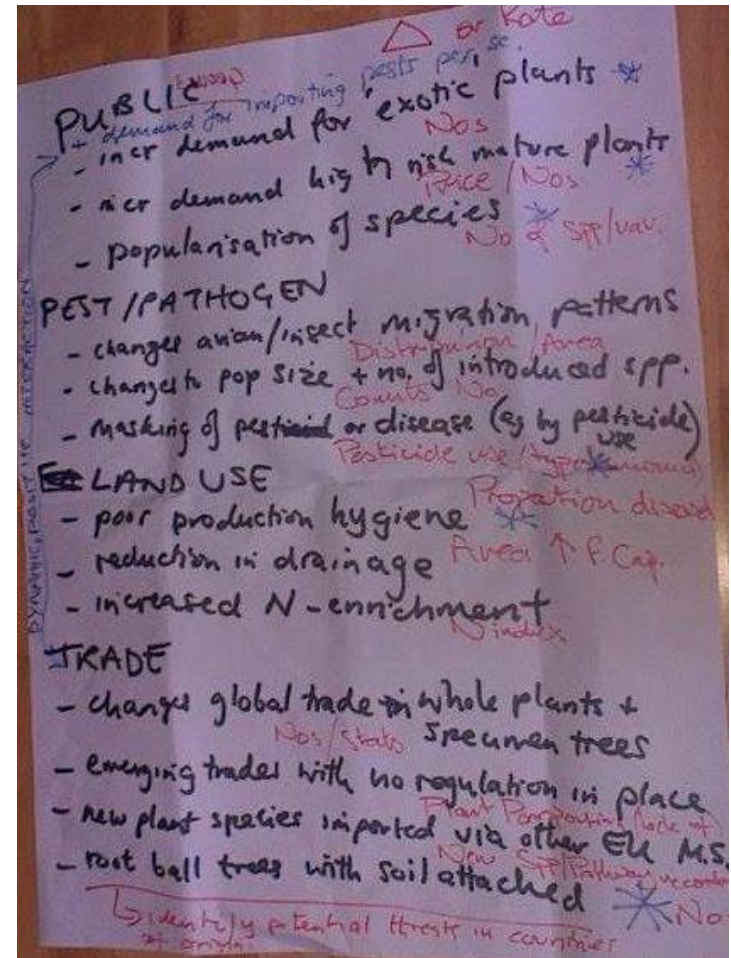 △ or Rate
PUBLIC
+ demand for importing pests per se.
- incr demand for exotic plants *
Nos
- incr demand high risk mature plants *
Price / Nos
- popularisation of species *
No of spp/var.
PEST / PATHOGEN
- changes avian/insect migration patterns
Distribution / Area
- changes to pop size + no. of introduced spp.
Counts No
- masking of pest or disease (eg by pesticide use)
Pesticide use / type
LAND USE
- poor production hygiene *
Proportion diseased
- reduction in drainage
Area ↑ F. Cap.
- increased N-enrichment
N index
TRADE
- changes global trade in whole plants +
specimen trees
Nos/stats
- emerging trades with no regulation in place
- new plant species imported via other EU M.S.
New Spp/Pathway
- root ball trees with soil attached *
No
↳ identify potential threats in countries
of origin.
DYNAMIC POSITIVE INTERACTION